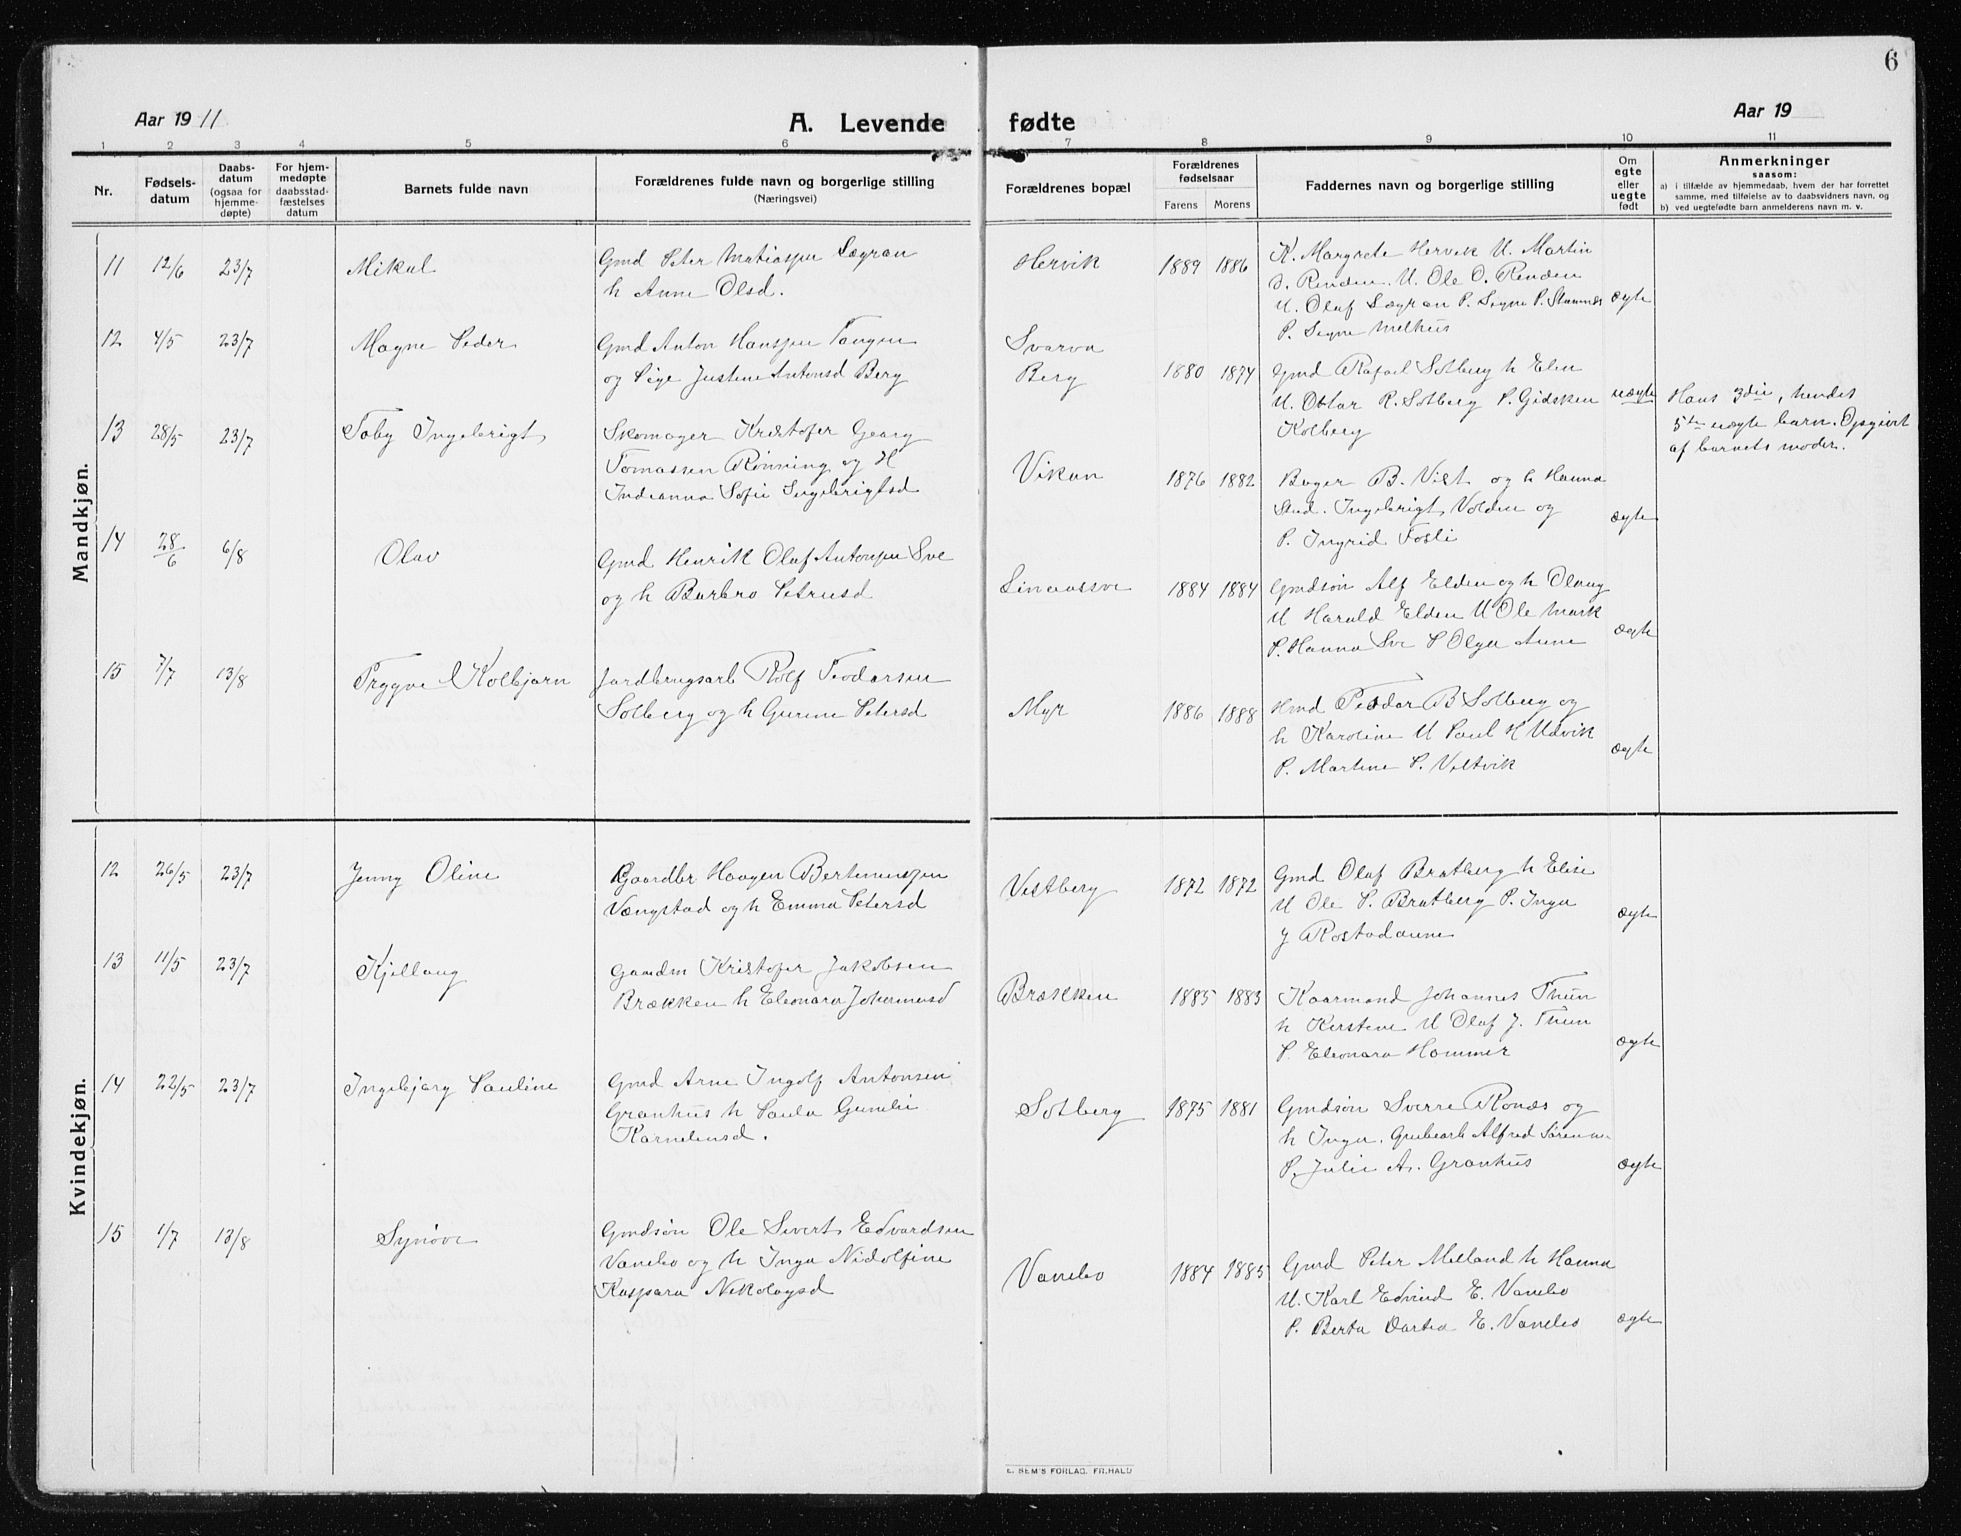 6
Aar 1911
A. Levende fødte
Aar 19
1 2 3 4 5 6 7 8 9 10 11
Nr.
Fødsels-
datum
Daabs-
datum
(ogsaa for
hjemme-
døpte)
For hjem-
medøpte
daabsstad-
fæstelses
datum
Barnets fulde navn
Forældrenes fulde navn og borgerlige stilling
(Næringsvei)
Forældrenes bopæl
Forældrenes
fødselsaar
Farens Morens
Faddernes navn og borgerlige stilling
Om
egte
eller
uegte
født
Anmerkninger
saasom:
a) i tilfælde av hjemmedaab, hvem der har forrettet
samme, med tilføielse av to daabsvidners navn, og
b) ved uegtefødte barn anmelderens navn m. v.
Mandkjøn.
11 12/6 23/7 Mikal
Gmd Peter Matiassen Sægran
h Anne Olsd.
Hervik 1889 1886
K. Margrete Hervik U. Martin
O. Renden. U. Ole O. Renden
U. Olaf Sægran P. Signe P. Stamnes
P. Signe Melhus
ægte
12 4/5 23/7 Magne Peder
Gmd Anton Hanssen Tangen
og Pige Justine Antonsd Berg
Svarva
Berg 1880 1874
Gmd Rafael Solberg h Elen
U. Ottar R. Solberg P. Gidsken
Kolberg
uægte
Hans 3die, hendes
5te uægte barn. Opgivet
af barnets moder.
13 28/5 23/7 Toby Ingebrigt
Skomager Kristofer Georg
Tomassen Rønning og H
Indianna Sofie Ingebrigtsd
Vikan 1876 1882
Bager B. Vist og h Hanna
Stud. Ingebrigt Volden og
P. Ingrid Fosli
ægte
14 28/6 6/8 Olav
Gmd Henrik Olaf Antonsen Sve
og h Barbro Petrusd
Linaassve 1884 1884
Gmdsøn Alf Elden og h Olaug
U Harald Elden U Ole Mark
P. Hanna Sve P Olga Aune
ægte
15 7/7 13/8 Trygve Kolbjørn
Jordbrugsarb Rolf Teodorsen
Solberg og h Gurine Petersd
Myr 1886 1888
Hmd Teodor B Solberg og
h Karoline U Paul H Udvik
P. Martine P. Veltvik
ægte
Kvindekjøn.
12 26/5 23/7 Jenny Oline
Gaardbr Haagen Bertinussen
Vængstad og h Emma Petersd
Vestberg 1872 1872
Gmd Olaf Bratberg h Elise
U Ole P. Bratberg P. Inga
J Rostadaune
ægte
13 11/5 23/7 Kjellaug
Gaardm Kristofer Jakobsen
Brækken h Eleonara Johannesd
Brækken 1885 1883
Kaarmand Johannes Thun
h Kirstene U Olaf J. Thun
P. Eleonara Hammer
ægte
14 22/5 23/7 Ingebjørg Pauline
Gmd Arne Ingolf Antonsen
Granhus h Paula Gunelie
Karneliusd.
Solberg 1875 1881
Gmdsøn Sverre Ronæs og
h Inga. Grubearb Alfred
P. Julie A. Granhus
ægte
15 1/7 13/8 Synøve
Gmdsøn Ole Sivert Edvardsen
Vanebo og h Inga Nidolfine
Kaspara Nikolaysd
Vanebo 1884 1885
Gmd Peter Meland h Hanna
U. Karl Edvind E. Vanebo
P. Berta Dortea E. Vanebo
ægte
E. SEM'S FORLAG. FR.HALD